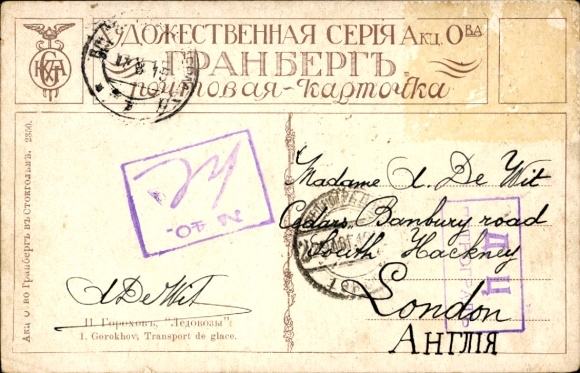 ХУДОЖЕСТВЕННАЯ СЕРІЯ Акц. Ова
ГРАНБЕРГЪ
почтовая-карточка
Акц. О-во Гранбергъ въ Стокгольмѣ. 2350.
№ 40-
Madame A. De Wit
Cedars, Banbury road
South Hackney
London
Англія
ADeWit
И. Гороховъ, "Ледовозы".
I. Gorokhov, Transport de glace.
Д Ц